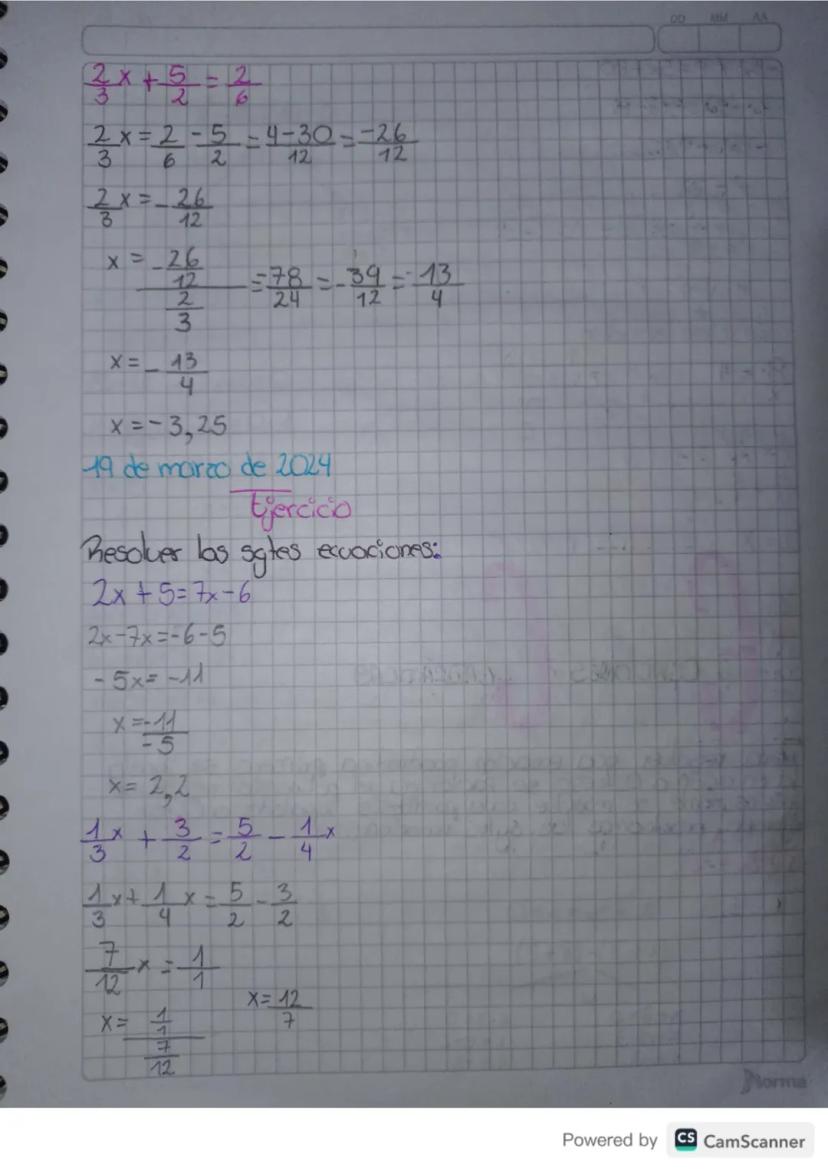 DD MM AA
2/3 x + 5/2 = 2/6
2/3 x = 2/6 - 5/2 = 4-30/12 = -26/12
2/3 x = - 26/12
x = - 26/12 / 2/3 = -78/24 = - 39/12 = - 13/4
x = - 13/4
x = - 3,25
19 de marzo de 2024
Ejercicio
Resolver las sgtes ecuaciones:
2x + 5 = 7x - 6
2x - 7x = -6 - 5
- 5x = -11
x = -11/-5
x = 2,2
1/3 x + 3/2 = 5/2 - 1/4 x
1/3 x + 1/4 x = 5/2 - 3/2
7/12 x = 1/1
x = 1/1 / 7/12 x = 12/7
Norma
Powered by CS CamScanner